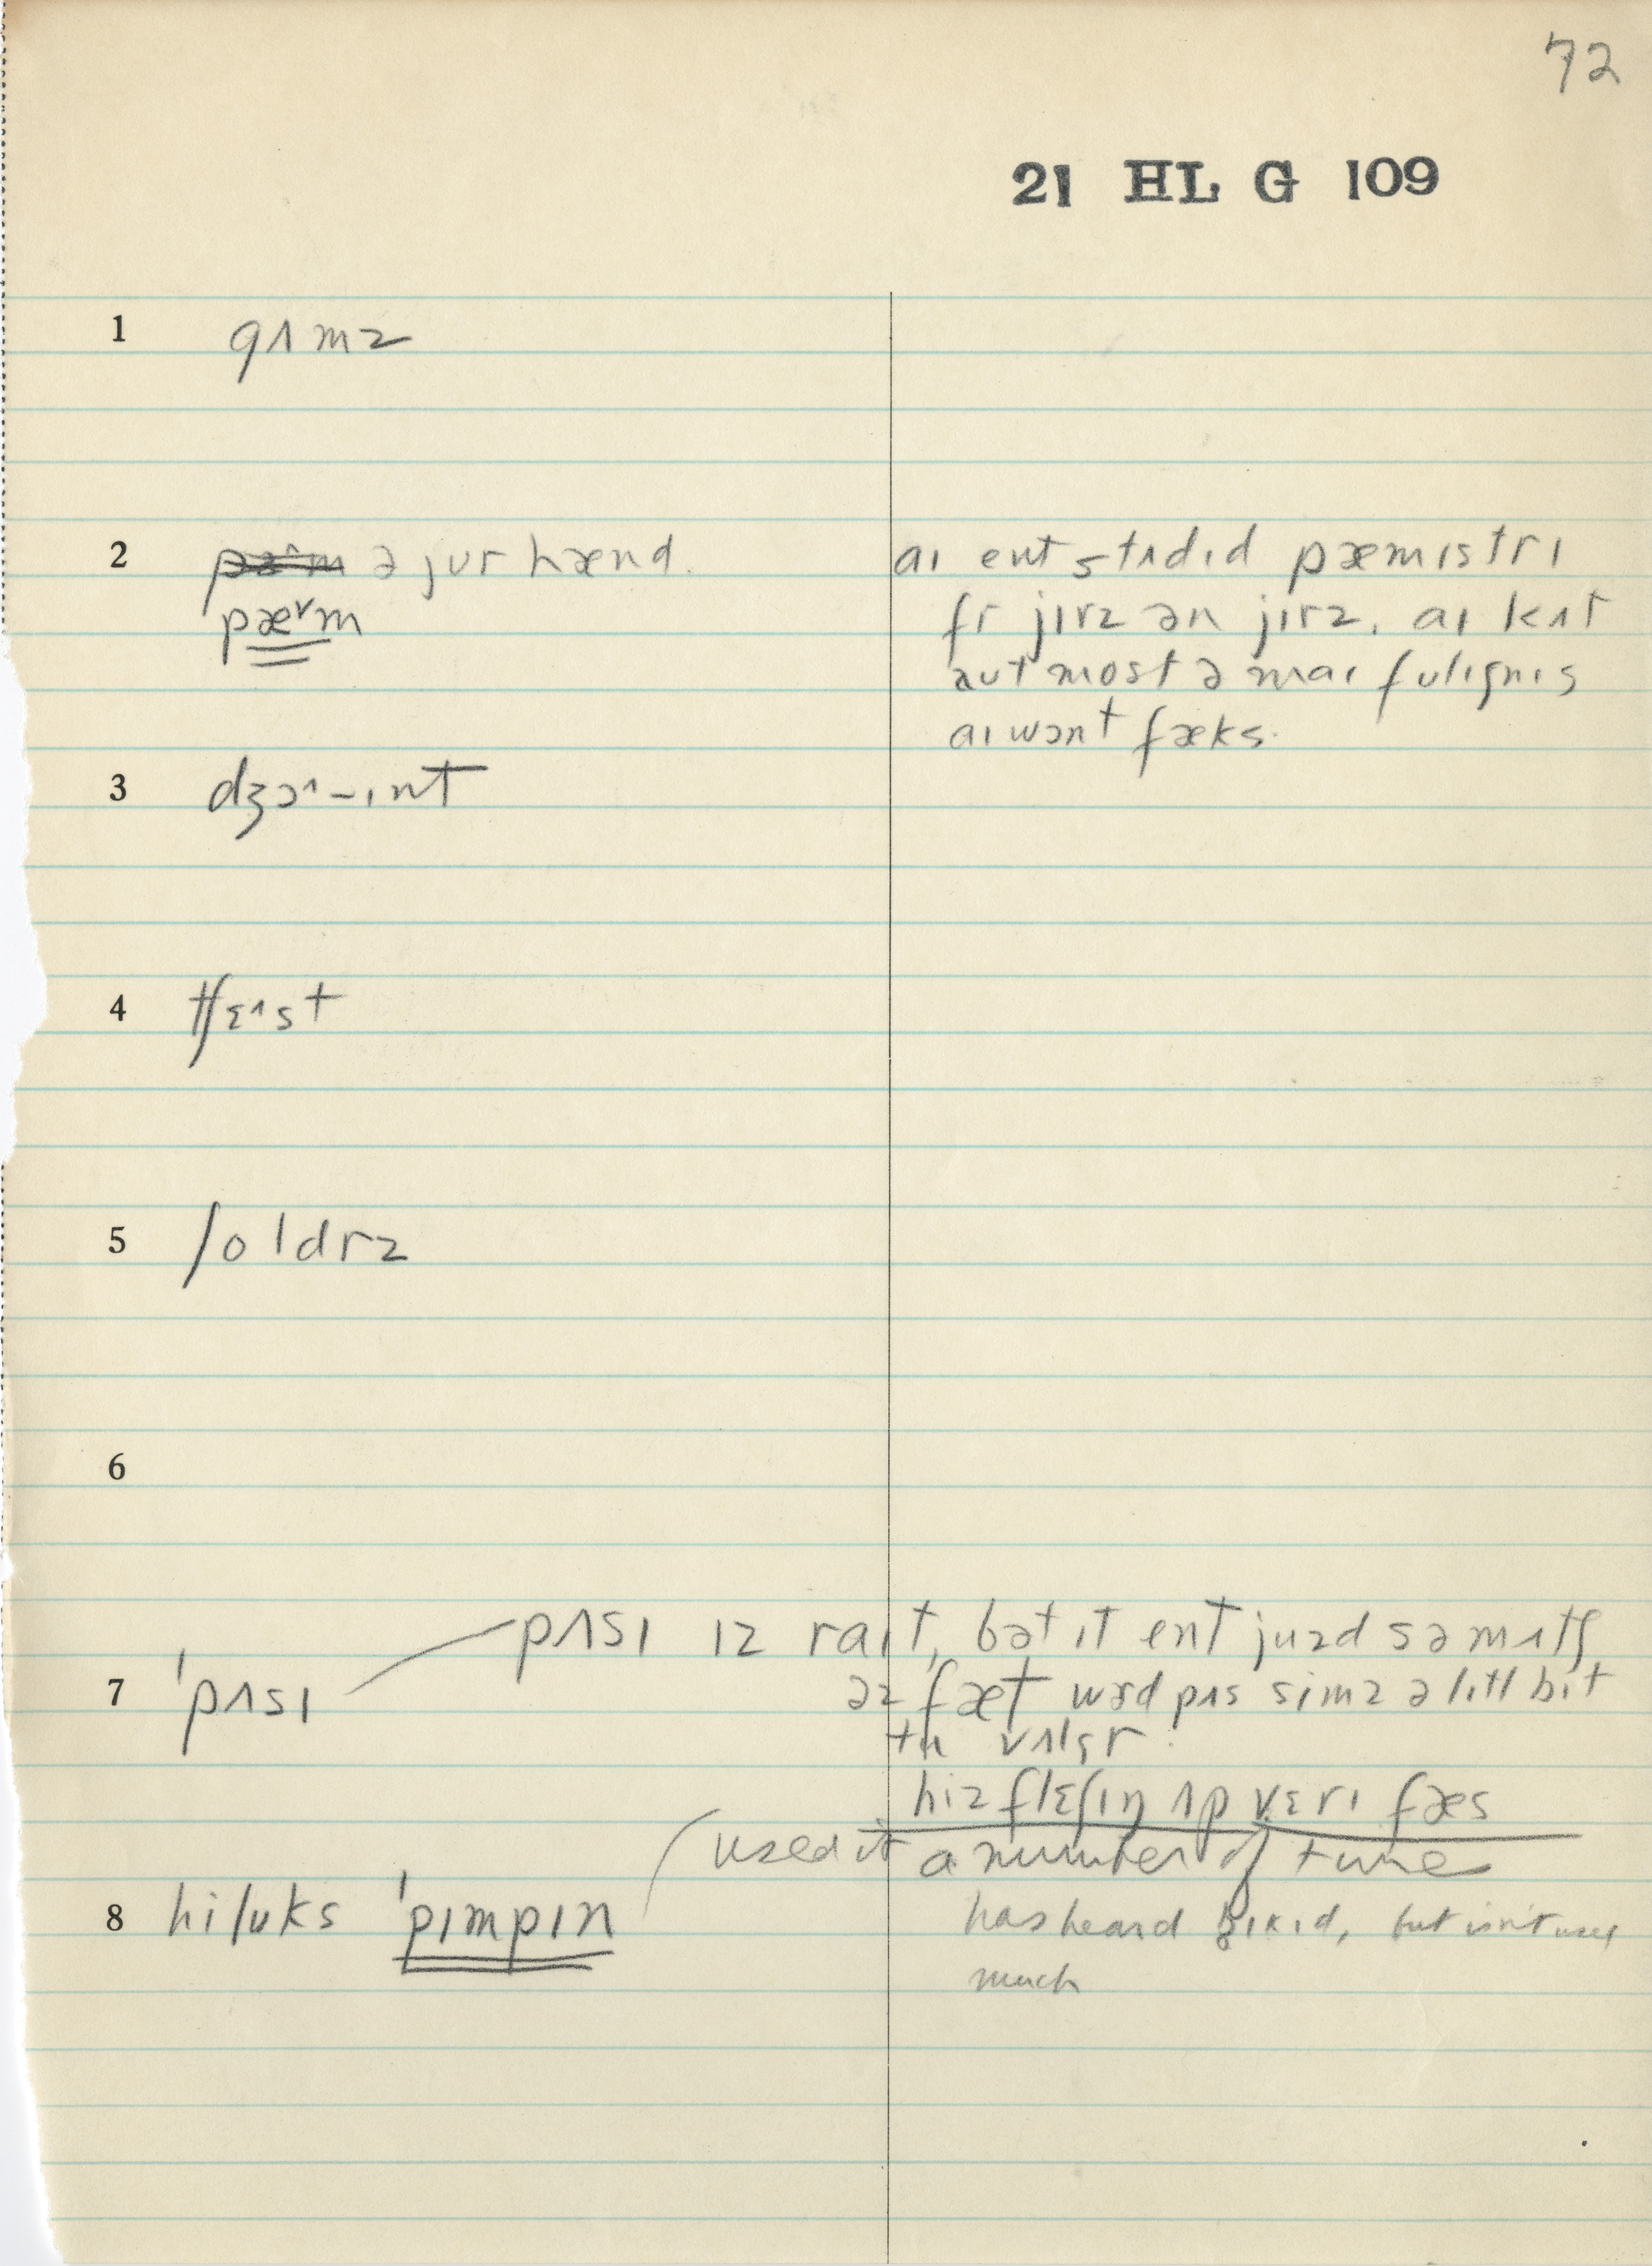 72
21 HL G 109
1 gʌmz
2 pæ^m ə jʊr hænd.
pæ˅m
aɪ ent stʌdɪd pæmɪstrɪ
fr jɪrz ən jɪrz. aɪ kʌt
aʊt most ə maɪ fulɪʃnɪs
aɪ wɔnt fæks.
3 dʒɔ^-ɪnt
4 tʃɛ^st
5 ʃoldrz
6
7 'pʌsɪ
pʌsɪ ɪz raɪt, bət ɪt ent juzd sə mʌtʃ
əz fæt wɜd pʌs simz ə lɪtl bɪt
tu vʌlgr.
hiz flɛʃɪŋ ʌp vɛrɪ fæs
used it a number of time
8 hi lʊks 'pɪmpɪn
has heard but isn't used
much